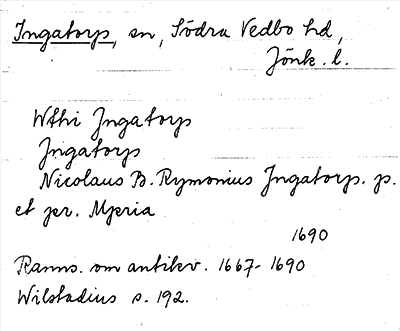 Ingatorp, sn, Södra Vedbo hd,
Jönk. l.
Wthi Jngatorp
Jngatorp
Nicolaus B. Rymonius Jngatorp. p.
et pr. Mperia
1690
Ranns. om antikv. 1667-1690
Wilstadius s. 192.